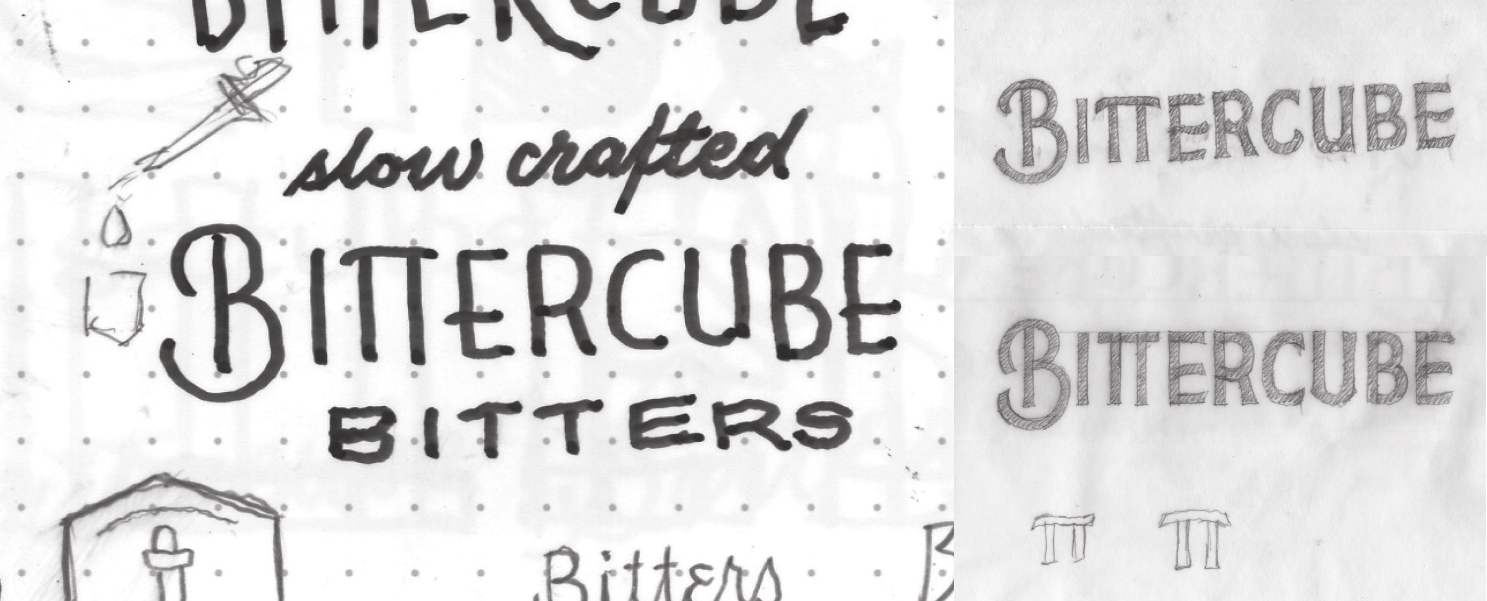 BITTERCUBE
slow crafted
BITTERCUBE
BITTERS
Bitters
B
BITTERCUBE
BITTERCUBE
TT TT